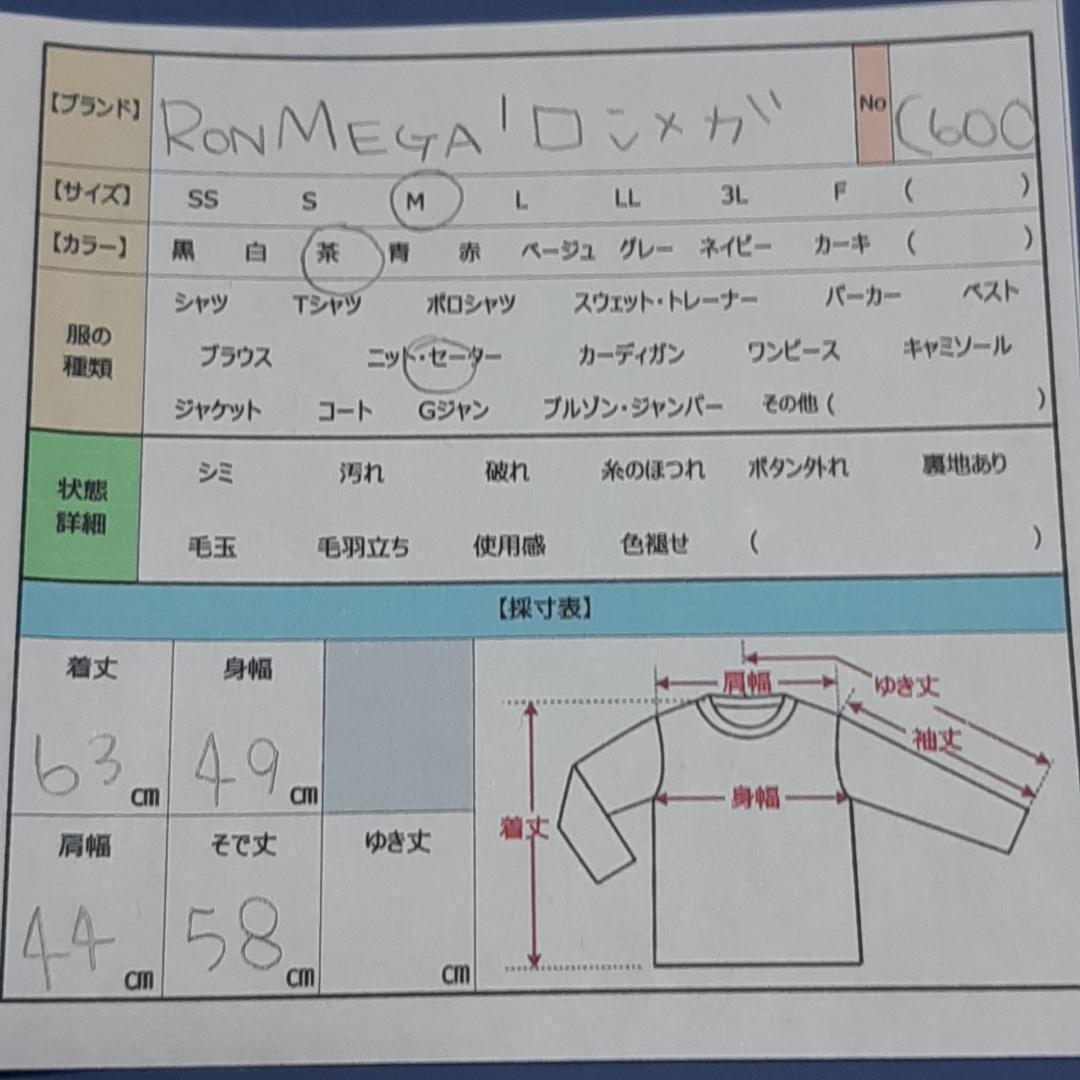 【ブランド】 RONMEGA 'ロンメガ No C600
【サイズ】 SS S M L LL 3L F ( )
【カラー】 黒 白 茶 青 赤 ベージュ グレー ネイビー カーキ ( )
服の種類
シャツ Tシャツ ポロシャツ スウェット・トレーナー パーカー ベスト
ブラウス ニット・セーター カーディガン ワンピース キャミソール
ジャケット コート Gジャン ブルゾン・ジャンパー その他 ( )
状態詳細
シミ 汚れ 破れ 糸のほつれ ボタン外れ 裏地あり
毛玉 毛羽立ち 使用感 色褪せ ( )
【採寸表】
着丈 身幅
63 cm 49 cm
肩幅 そで丈 ゆき丈
44 cm 58 cm cm
肩幅
ゆき丈
袖丈
身幅
着丈